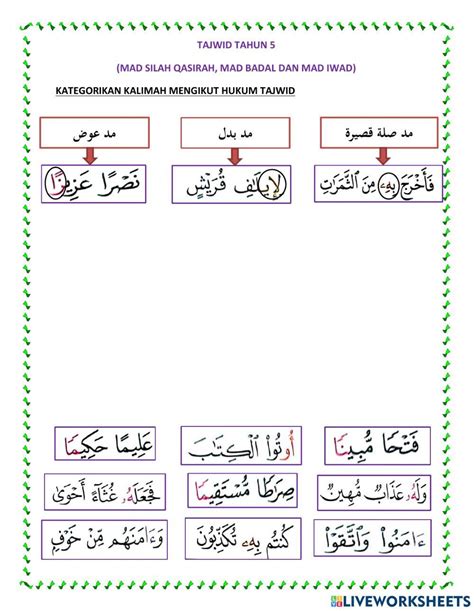 TAJWID TAHUN 5
(MAD SILAH QASIRAH, MAD BADAL DAN MAD IWAD)
KATEGORIKAN KALIMAH MENGIKUT HUKUM TAJWID
مد صلة قصيرة
مد بدل
مد عوض
فَأَخْرَجَ بِهِۦ مِنَ ٱلثَّمَرَٰتِ
لِإِيلَٰفِ قُرَيْشٍ
نَصْرًا عَزِيزًا
فَتْحًا مُّبِينًا
أُوتُوا۟ ٱلْكِتَٰبَ
عَلِيمًا حَكِيمًا
وَلَهُۥ عَذَابٌ مُّهِينٌ
صِرَٰطًا مُّسْتَقِيمًا
فَجَعَلَهُۥ غُثَآءً أَحْوَىٰ
ءَامَنُوا۟ وَٱتَّقَوْا۟
كُنتُم بِهِۦ تُكَذِّبُونَ
وَءَامَنَهُم مِّنْ خَوْفٍۭ
LIVEWORKSHEETS